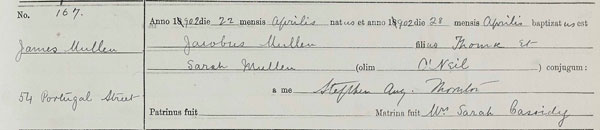 No. 167.
James Mullen
54 Portugal Street
Anno 1902 die 22 mensis Aprilis natus et anno 1902 die 28 mensis Aprilis baptizatus est
Jacobus Mullen filius Thomæ Et
Sarah Mullen (olim O'Neil) conjugum:
a me Stephen Aug. Thornton
Patrinus fuit Matrina fuit Mrs Sarah Cassidy